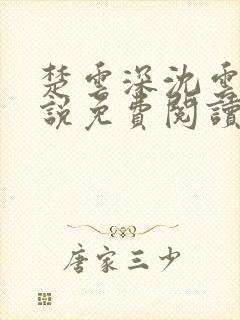 楚雲深沈雲
說免費閱讀
唐家三少